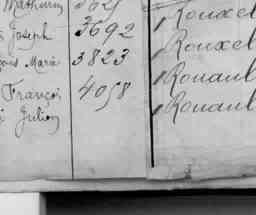 Mathurin 3621 Rouxel
Joseph 3692 Rouxel
Marie 3823 Rouaul
François 4058 Rouaul
Julien